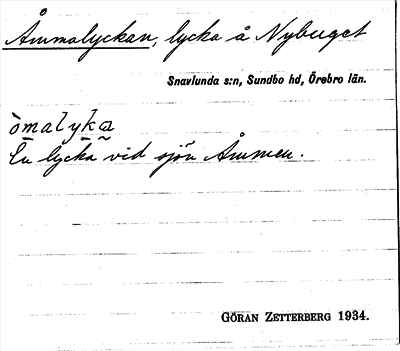 Åmmalyckan, lycka å Nybyget
Snavlunda s:n, Sundbo hd, Örebro län.
òmalyka
En lycka vid sjön Åmmen.
GÖRAN ZETTERBERG 1934.